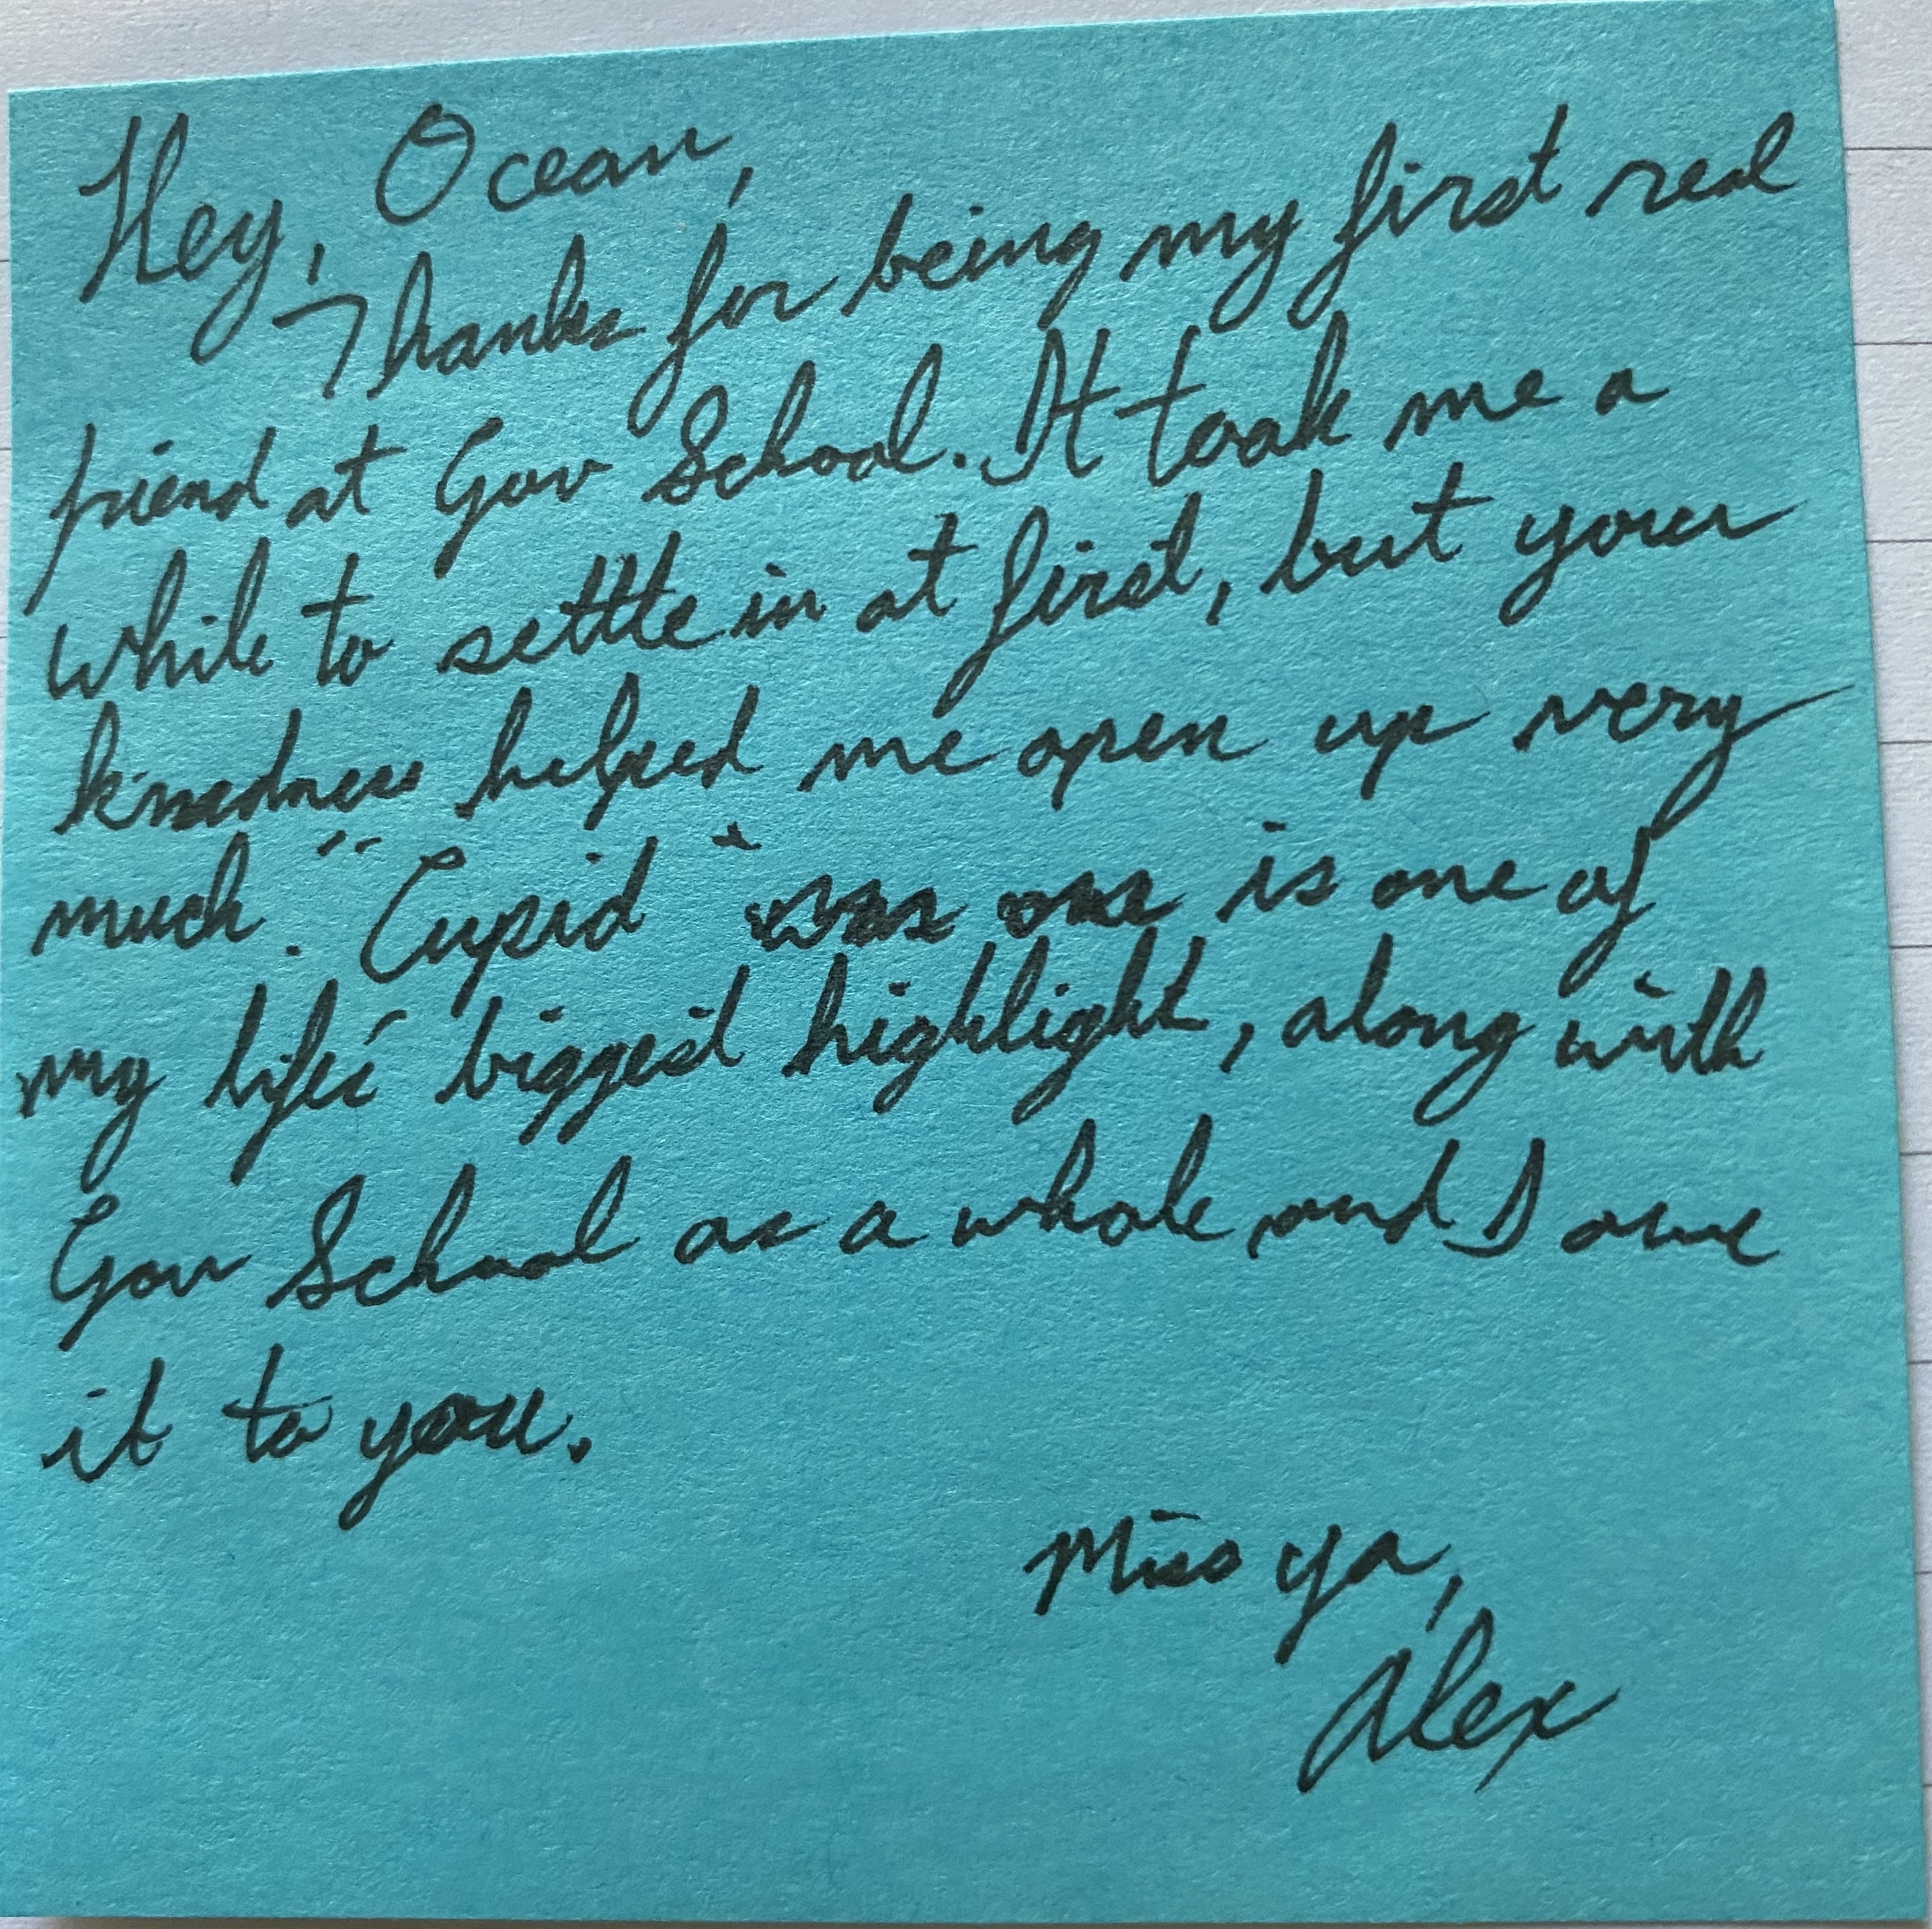 Hey, Ocean,
Thanks for being my first real
friend at Gov School. It took me a
while to settle in at first, but your
kindness helped me open up very
much. "Cupid" was one is one of
my life's biggest highlight, along with
Gov School as a whole and I owe
it to you.
Miss ya,
Alex